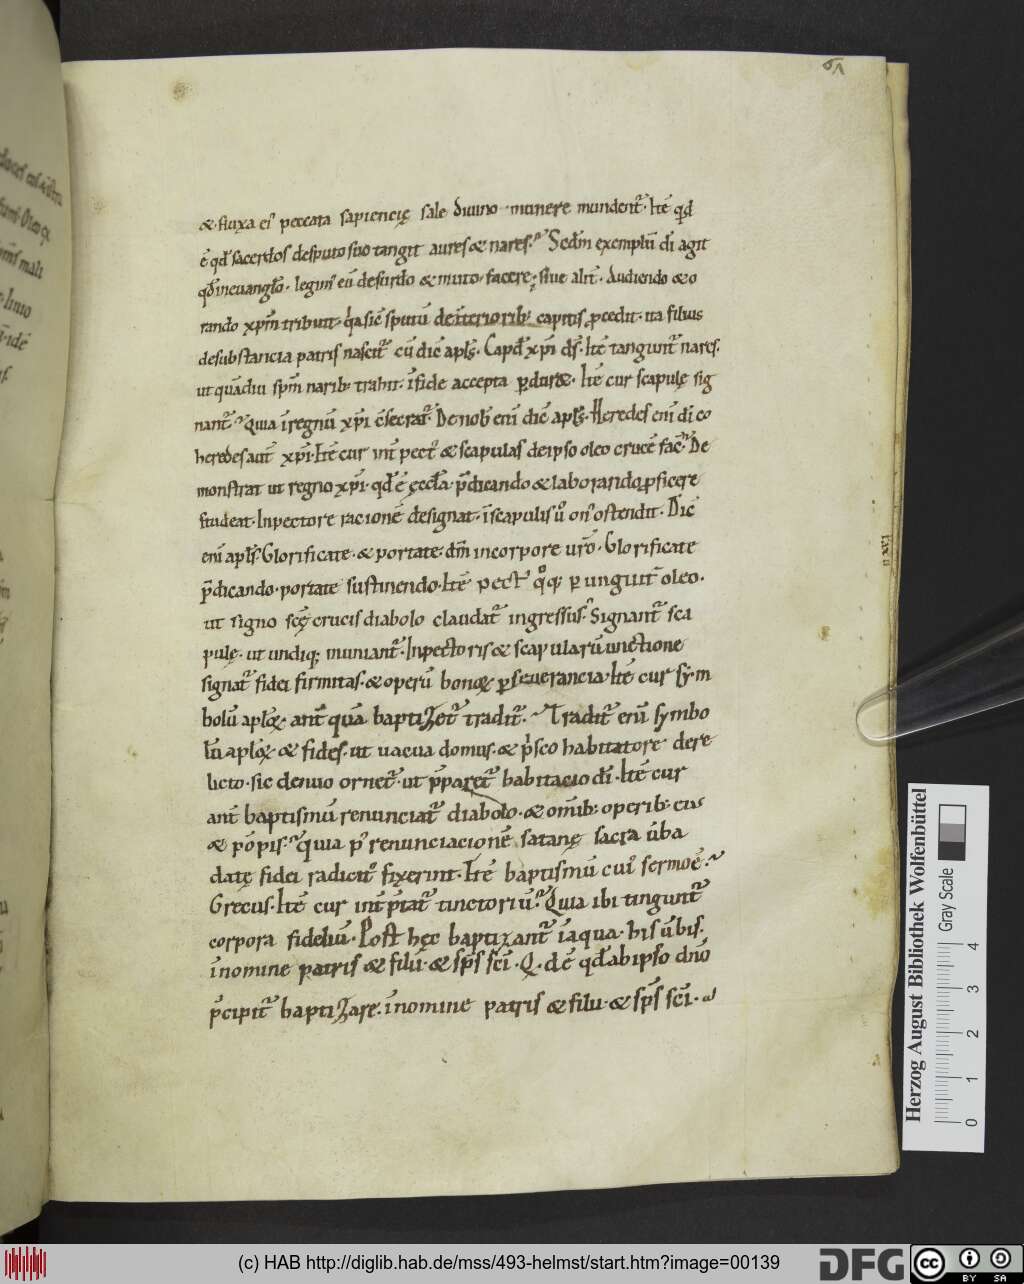 & fluxa ei᾽ peccata sapiencię sale diuino munere mundent᷑. Itē qd̄
ē qd̄ sacerdos desputo suo tangit aures & nares. Sedm̄ exemplū dī agit
qd̄ ineuanglō. legim᾽ eū desurdo & muto. facere; siue alit̄. Audiendo & o
rando xp̄m tribuit. q̇a sic̄ sputū deīterioriƀ capitis ꝓcedit. ita filius
desubstancia patris nascit᷑ cū dic̄ apl̄s. Capd̄ xp̄i dś. Itē tangunt᷑ nares.
ut quādiu sp̄m nariƀ trahit. īfide accepta ꝑdur&. Itē cur scapulę sig
nant᷑. Quia īregnū xp̄i c̄secrat᷑. De noƀ enī dic̄ apl̄s. Heredes enī dī co
heredes aut̄ xp̄i. Itē cur int̄ pect᾽ & scapulas deipso oleo crucē fac̄. De
monstrat ut regno xp̄i. qd̄ ē ęccl̄a. p̄dicando & laborando ꝓficere
studeat. Inpectore racionē designat. īscapulis ů on᾽ ostendit. Dic̄
enī apl̄s. Glorificate. & portate. dm̄ incorpore urō. Glorificate
p̄dicando. portate sustinendo. Itē pect᾽ qͦꝙ ꝑunguit᷑ oleo.
ut signo scę̄ crucis diabolo claudat᷑ ingressus. Signant᷑ sca
pulę. ut undiq; muniant᷑. Inpectoris & scapularū unctione
signat᷑ fidei firmitas. & operū bonoꝝ ꝑseuerancia. Itē cur sym
bolū aploꝝ. ant̄ quā baptizet᷑ tradit᷑. Tradit᷑ enī symbo
lū aploꝝ & fides. ut uacua domus. & ṗsco habitatore dere
licto. sic denuo ornet᷑. ut p̄paret᷑ habitacio dī. Itē cur
ant̄ baptismū renunciat᷑ diabolo. & om̄iƀ; operiƀ; eius
& pōpis. Quia p᾽ renunciacionē satanę sacra ūba
datę fidei radicit᾽ fixerint. Itē baptismū cui᾽ sermo ē.
Grecus. Itē cur int̄p̄tat᷑ tinctoriū. Quia ibi tingunt᷑
corpora fideliū. Post hęc baptizant᷑ īaqua. his ūbis.
īnomine patris & filii. & sp̄s scī. Q. dē qd̄ abipso dnō
p̄cipit᷑ baptizare. īnomine patris & filii. & sp̄s scī.
Herzog August Bibliothek Wolfenbüttel
Gray Scale
0 1 2 3 4
(c) HAB http://diglib.hab.de/mss/493-helmst/start.htm?image=00139
DFG
cc BY SA